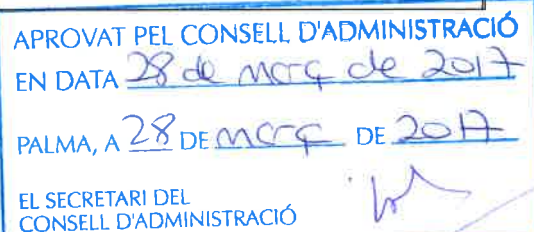 APROVAT PEL CONSELL D'ADMINISTRACIÓ
EN DATA 28 de març de 2017
PALMA, A 28 DE març DE 2017
EL SECRETARI DEL
CONSELL D'ADMINISTRACIÓ